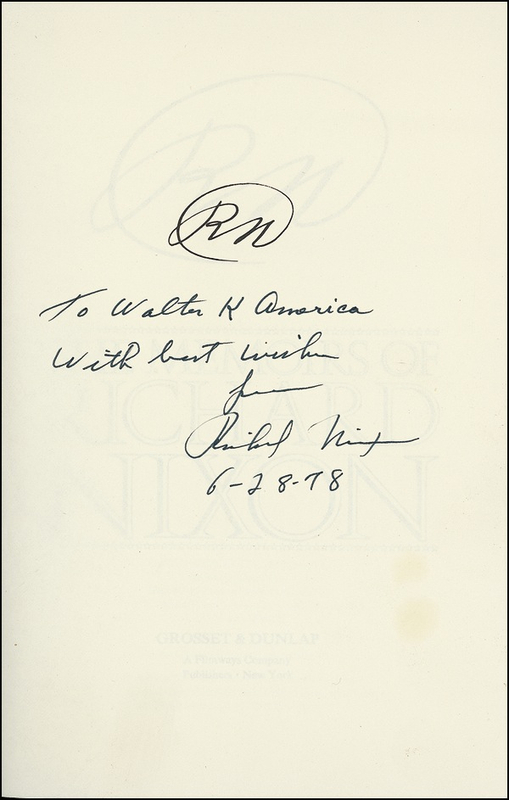 RN
To Walter K America
With best wishes
from
Richard Nixon
6-28-78
RN
THE MEMOIRS OF
RICHARD
NIXON
GROSSET & DUNLAP
A Filmways Company
Publishers / New York